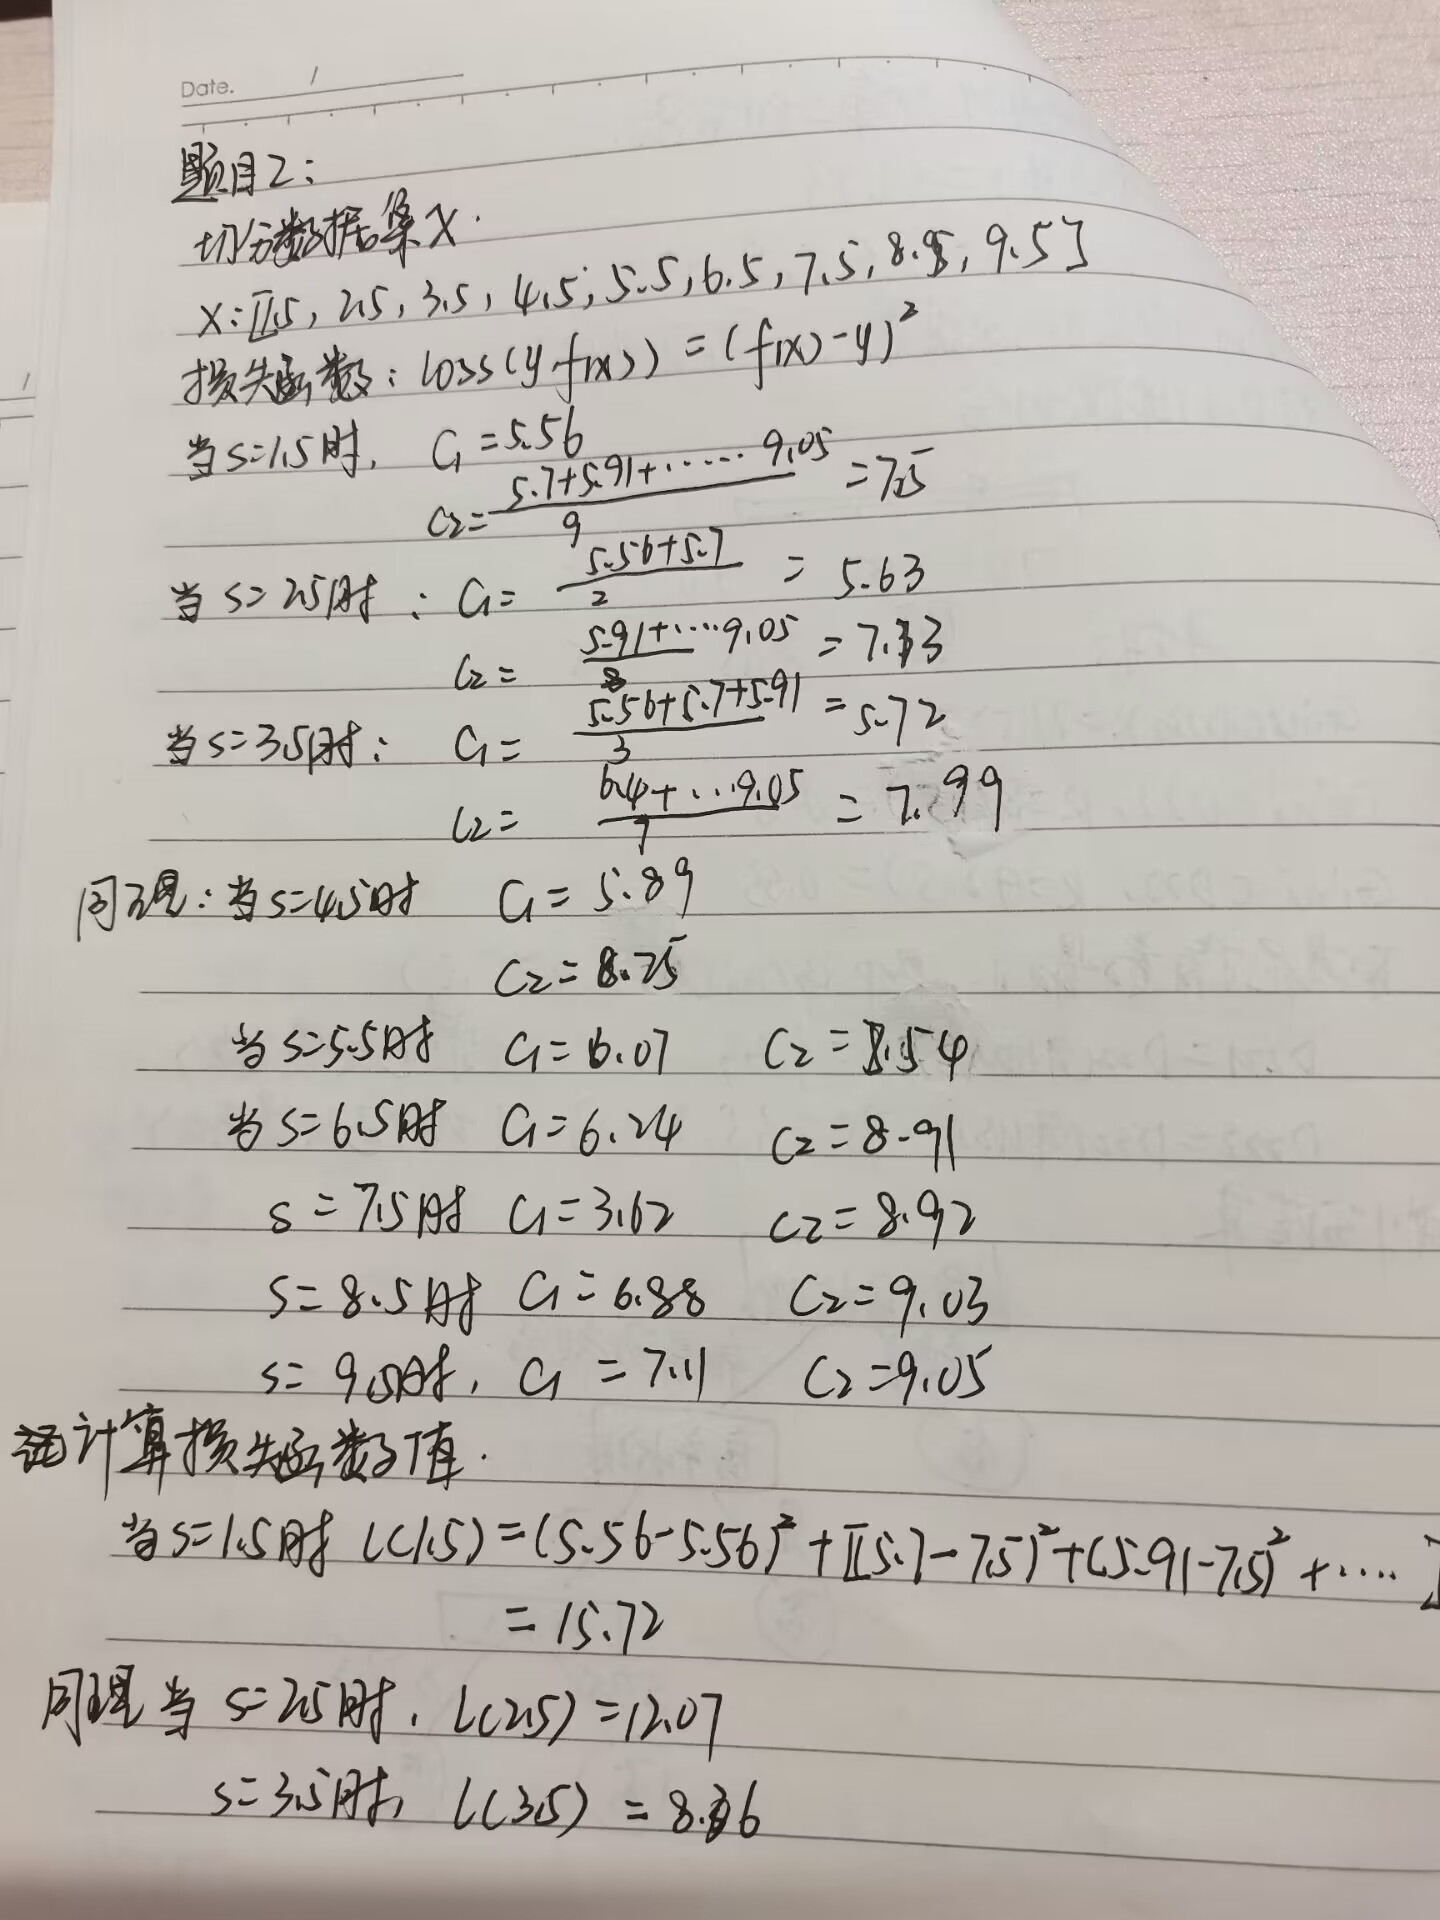 Date. /
题目2:
切分数据集X.
X:[1.5, 2.5, 3.5, 4.5, 5.5, 6.5, 7.5, 8.5, 9.5]
损失函数: loss(y f(x)) = (f(x)-y)²
当s=1.5时, C₁=5.56
C₂= (5.7+5.91+······9.05)/9 =7.5
当s=2.5时: C₁= (5.56+5.7)/2 = 5.63
C₂= (5.91+····9.05)/8 =7.73
当s=3.5时: C₁= (5.56+5.7+5.91)/3 =5.72
C₂= (6.4+···9.05)/7 =7.99
同理:当s=4.5时 C₁=5.89
C₂=8.25
当s=5.5时 C₁=6.07 C₂=8.54
当s=6.5时 C₁=6.24 C₂=8.91
s=7.5时 C₁=3.62 C₂=8.92
s=8.5时 C₁=6.88 C₂=9.03
s=9.5时, C₁=7.11 C₂=9.05
计算损失函数值.
当s=1.5时 L(1.5)=(5.56-5.56)²+[(5.7-7.5)²+(5.91-7.5)²+····]
=15.72
同理当 s=2.5时, L(2.5)=12.07
s=3.5时, L(3.5)=8.36